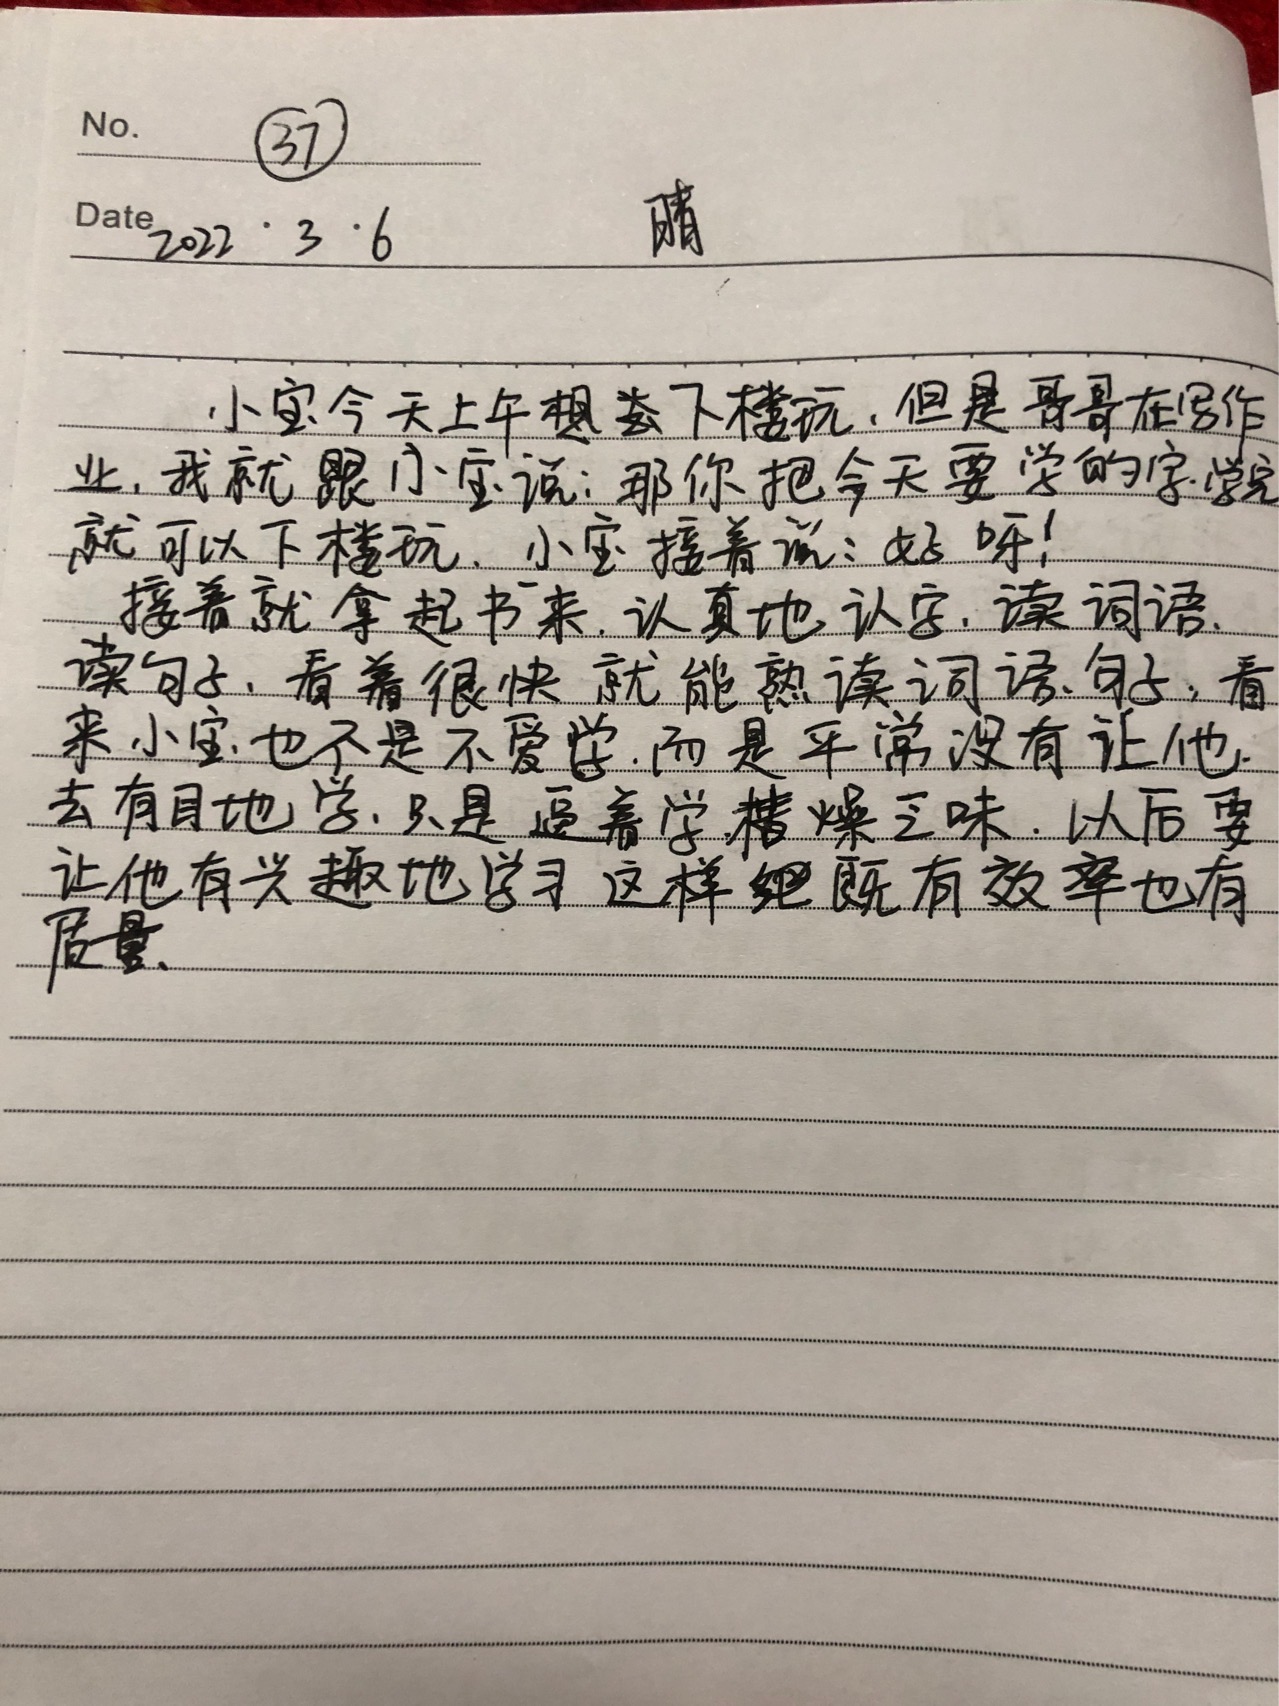 No. 37
Date 2022·3·6 晴
小宝今天上午想去下楼玩,但是哥哥在写作
业,我就跟小宝说:那你把今天要学的字学完
就可以下楼玩、小宝接着说:好呀!
接着就拿起书来,认真地认字,读词语、
读句子、看着很快就能熟读词语、句子,看
来小宝也不是不爱学,而是平常没有让他
去有目地学,只是逼着学,燥三味,以后要
让他有兴趣地学习这样既有效率也有
质量、